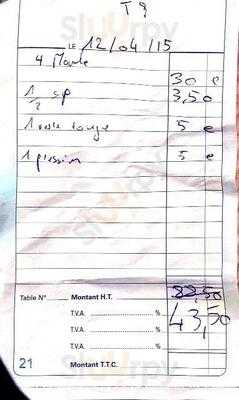 T 9
LE 12/04/15
4 Moule
30 e
1/2 sp 3,50
1 verre rouge 5 e
1 pression 5 e
Table N° Montant H.T.
T.V.A. %
43,50
T.V.A. %
T.V.A. %
21 Montant T.T.C.